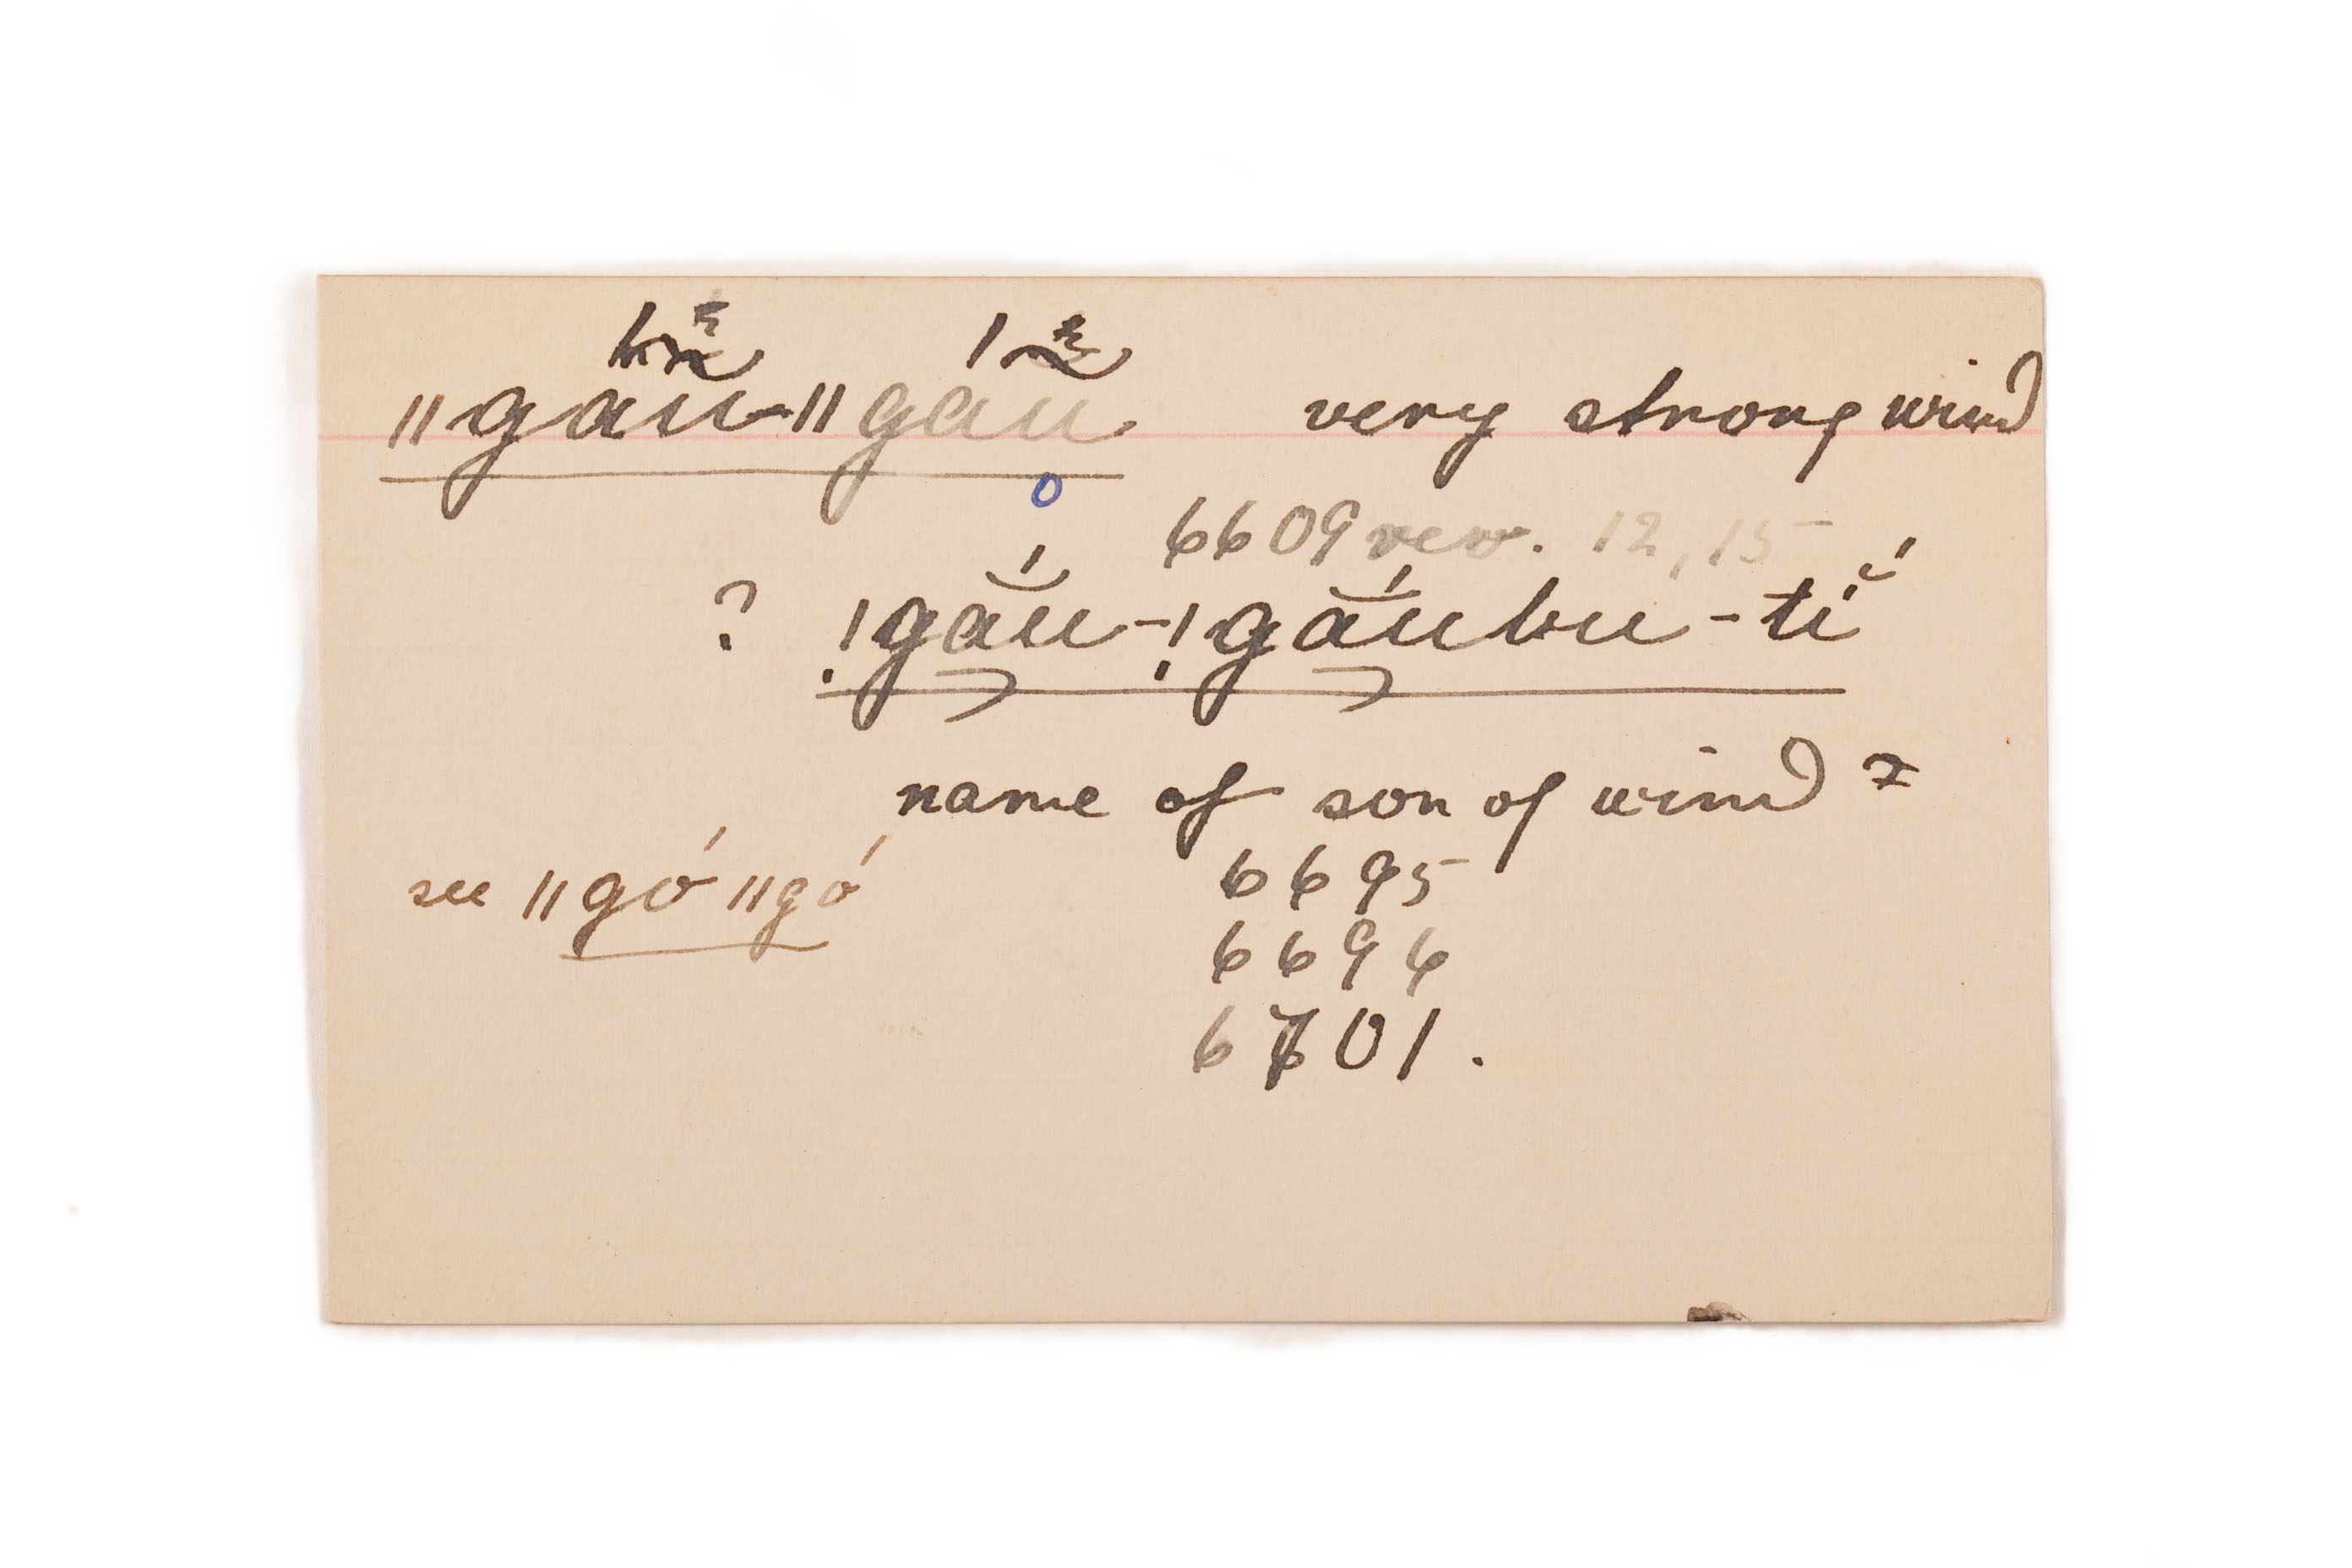 ǁgău-ǁgău very strong wind
6609 rev. 12, 15
? !gắu-!gắubu-tĭ́
name of son of wind
see ǁgó ǁgó 6695
6696
6701.